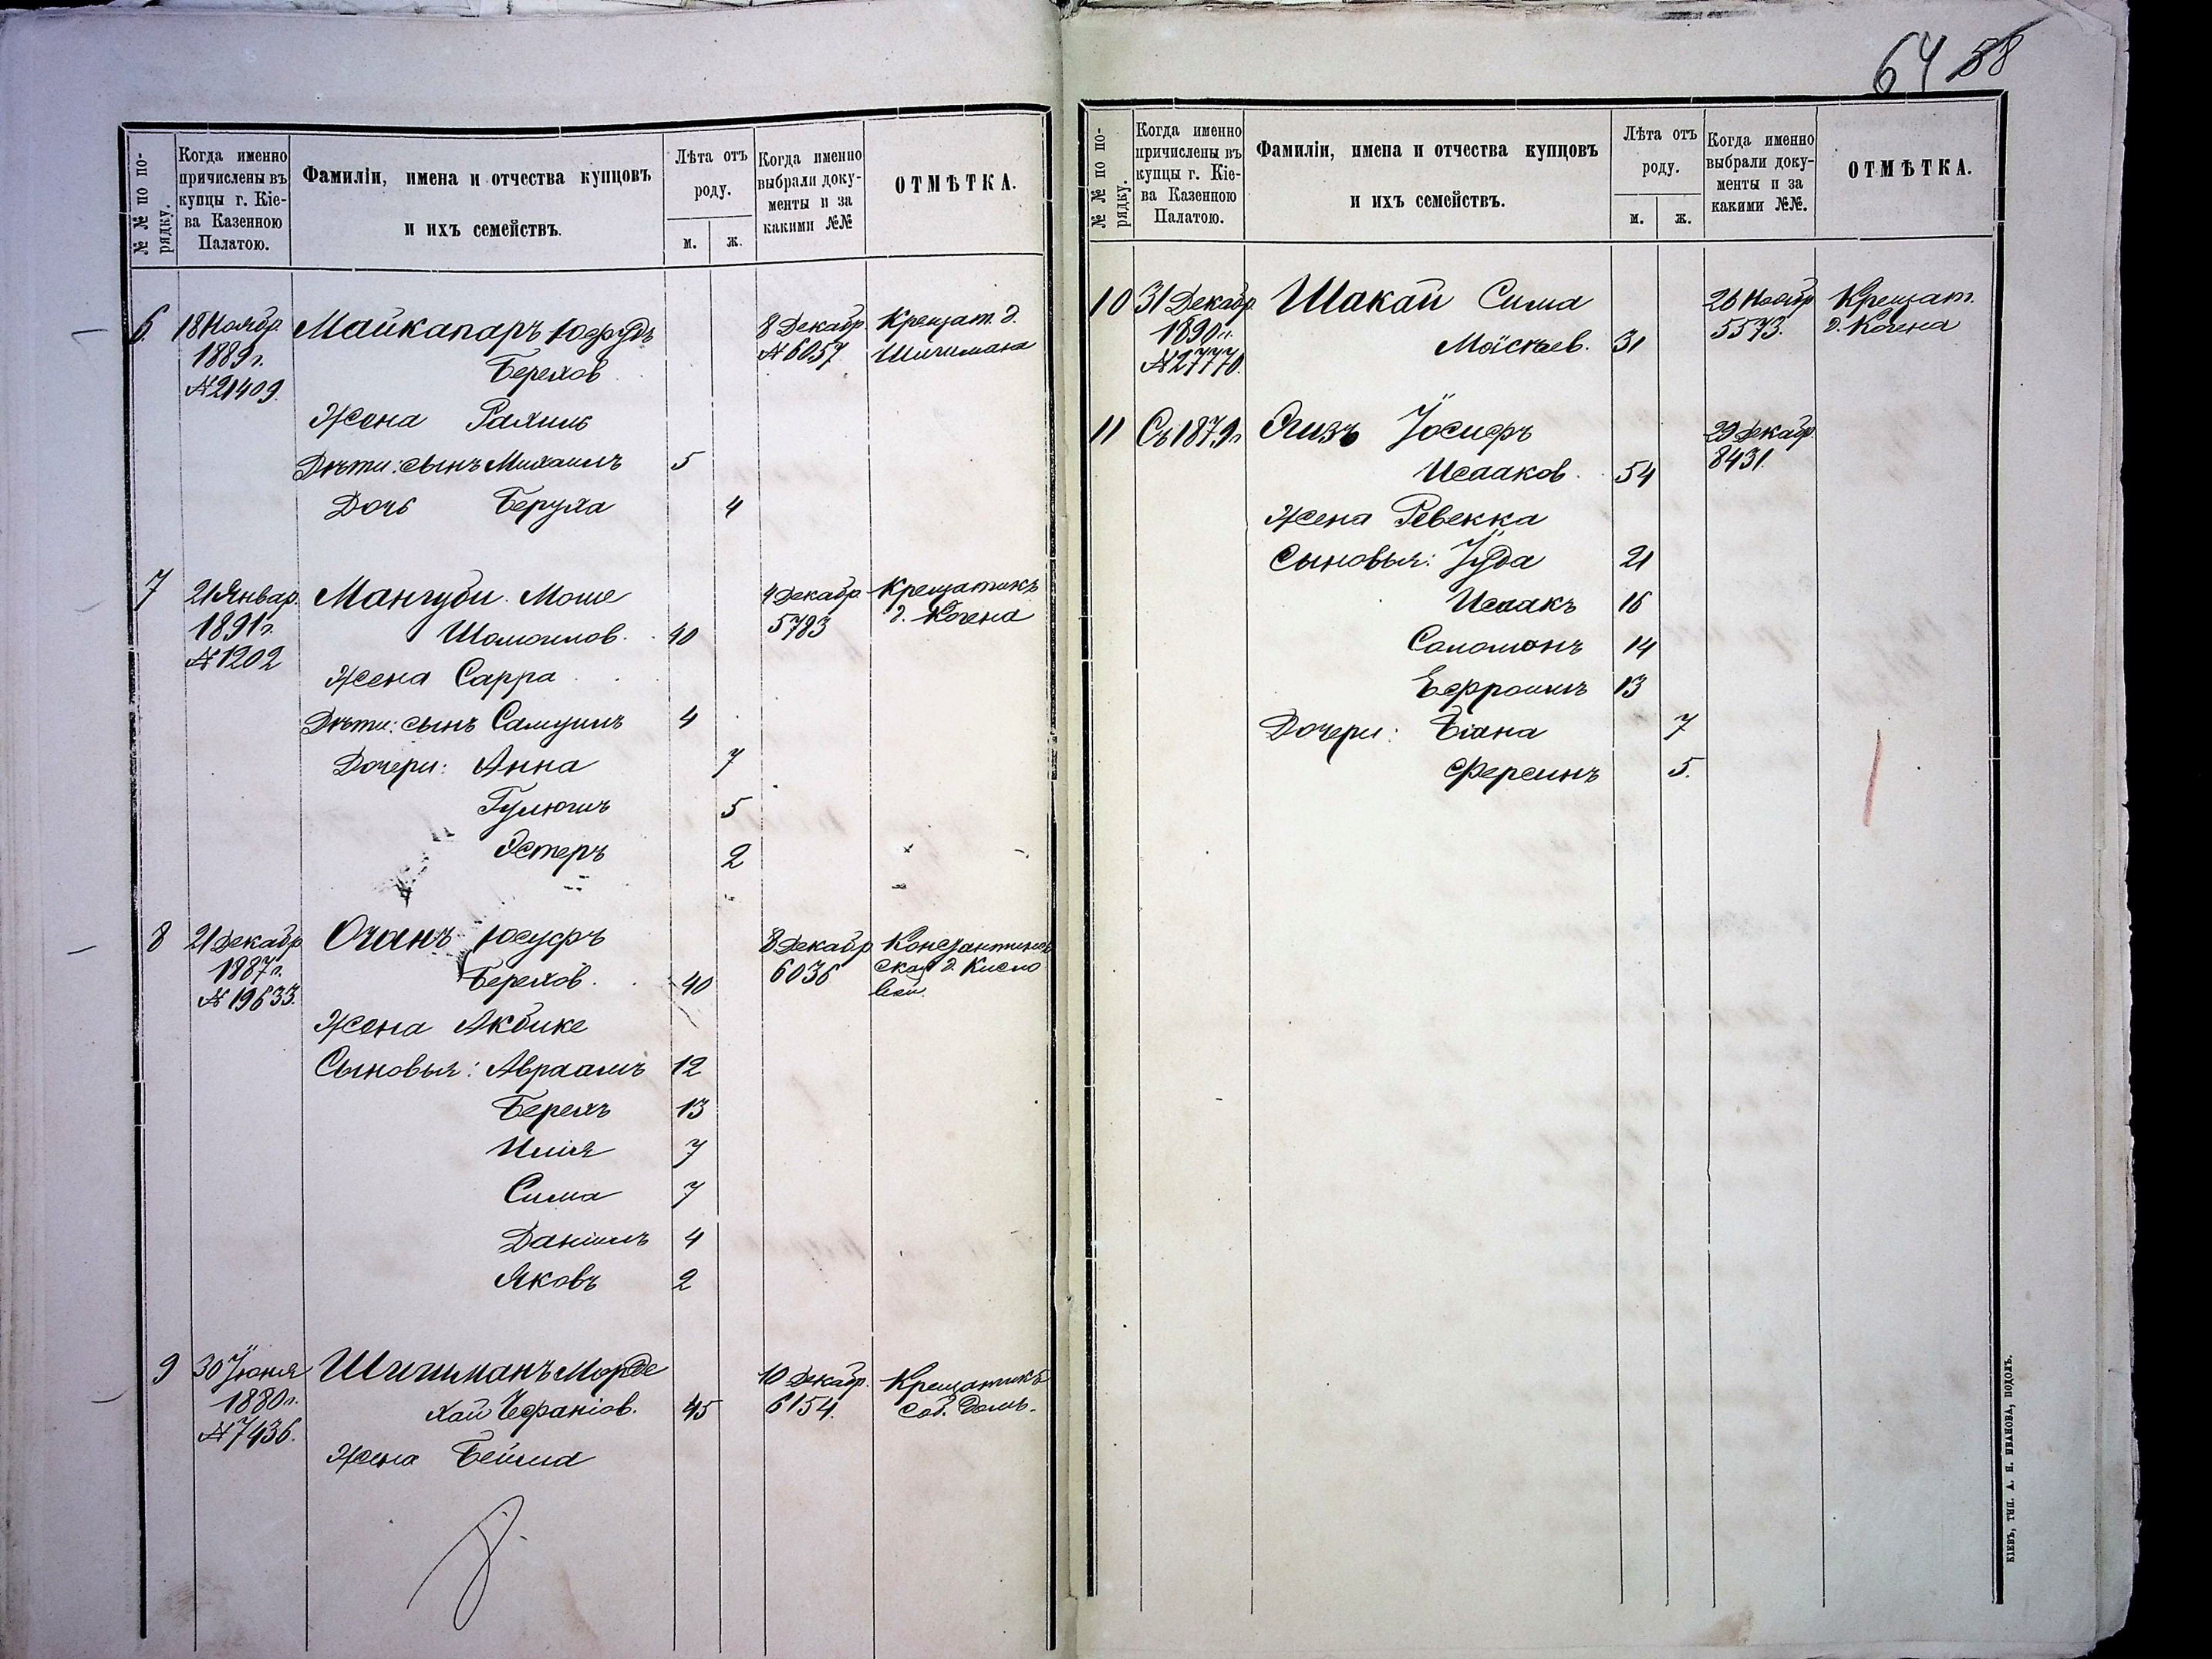 64 58
№№ по по-
рядку.
Когда именно
причислены въ
купцы г. Кіе-
ва Казенною
Палатою.
Фамиліи, имена и отчества купцовъ
и ихъ семействъ.
Лѣта отъ
роду.
м.
ж.
Когда именно
выбрали доку-
менты и за
какими №№
ОТМѢТКА.
6. 18 Ноябр. Майкапаръ 8 Декабр. Крещат. д.
1889 г. Берахов № 6057 Шишмана
№ 21409.
Жена Рахиль
Дѣти: сынъ Михаилъ 5
Дочь Беруха 4
7 21 Январ. Мангуби Моше 4 Декабр. Крещатикъ
1891 г. Шомоилов. 40 5783 д. Когена
№ 1202
Жена Сарра
Дѣти: сынъ Самуилъ 4
Дочери: Анна 7
Гулюшъ 5
Эстеръ 2
8 21 Декабр. Очанъ Юсуфъ 8 Декабр. Константинов
1887 г. Берахов. 40 6036 ская д.
№ 19633.
Жена Акбике
Сыновья: Авраамъ 12
Берахъ 13
Илія 7
Сима 7
Даніилъ 4
Яковъ 2
9 30 Іюня Шишманъ Морде 10 Декабр. Крещатикъ
1880 г. хай 45 6154. Соб. Домъ.
№ 7436.
Жена Бейма
№№ по по-
рядку.
Когда именно
причислены въ
купцы г. Кіе-
ва Казенною
Палатою.
Фамиліи, имена и отчества купцовъ
и ихъ семействъ.
Лѣта отъ
роду.
м.
ж.
Когда именно
выбрали доку-
менты и за
какими №№.
ОТМѢТКА.
10 31 Декабр. Шакай Сима 26 Ноябр. Крещат.
1890 г. Моисеев. 31 5573. д. Когена
№ 27770.
11 Съ 1879 г. Эгизъ Іосифъ 29 Декабр.
Исааков. 54 8431.
Жена Ревекка
Сыновья: Іуда 21
Исаакъ 16
Соломонъ 14
Ефроимъ 13
Дочери: Біана 7
Ферсинъ 5.
КІЕВЪ, ТИП. А. Н. ИВАНОВА, ПОДОЛЪ.